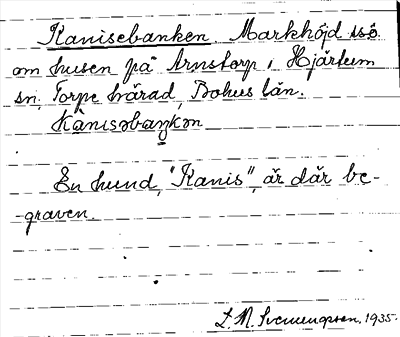 Kanisebanken Markhöjd isö
om husen på Arnstorp, Hjärtum
sn, Torpe härad, Bohus län.
Kànisəbaŋkən
En hund, "Kanis", är där be-
graven.
L. M. Svenungsson, 1935.